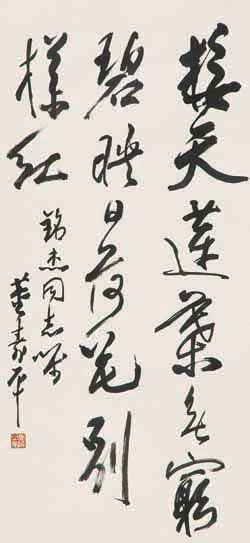 接天莲叶无穷
碧映日荷花别
样红
铭杰同志嘱
董寿平